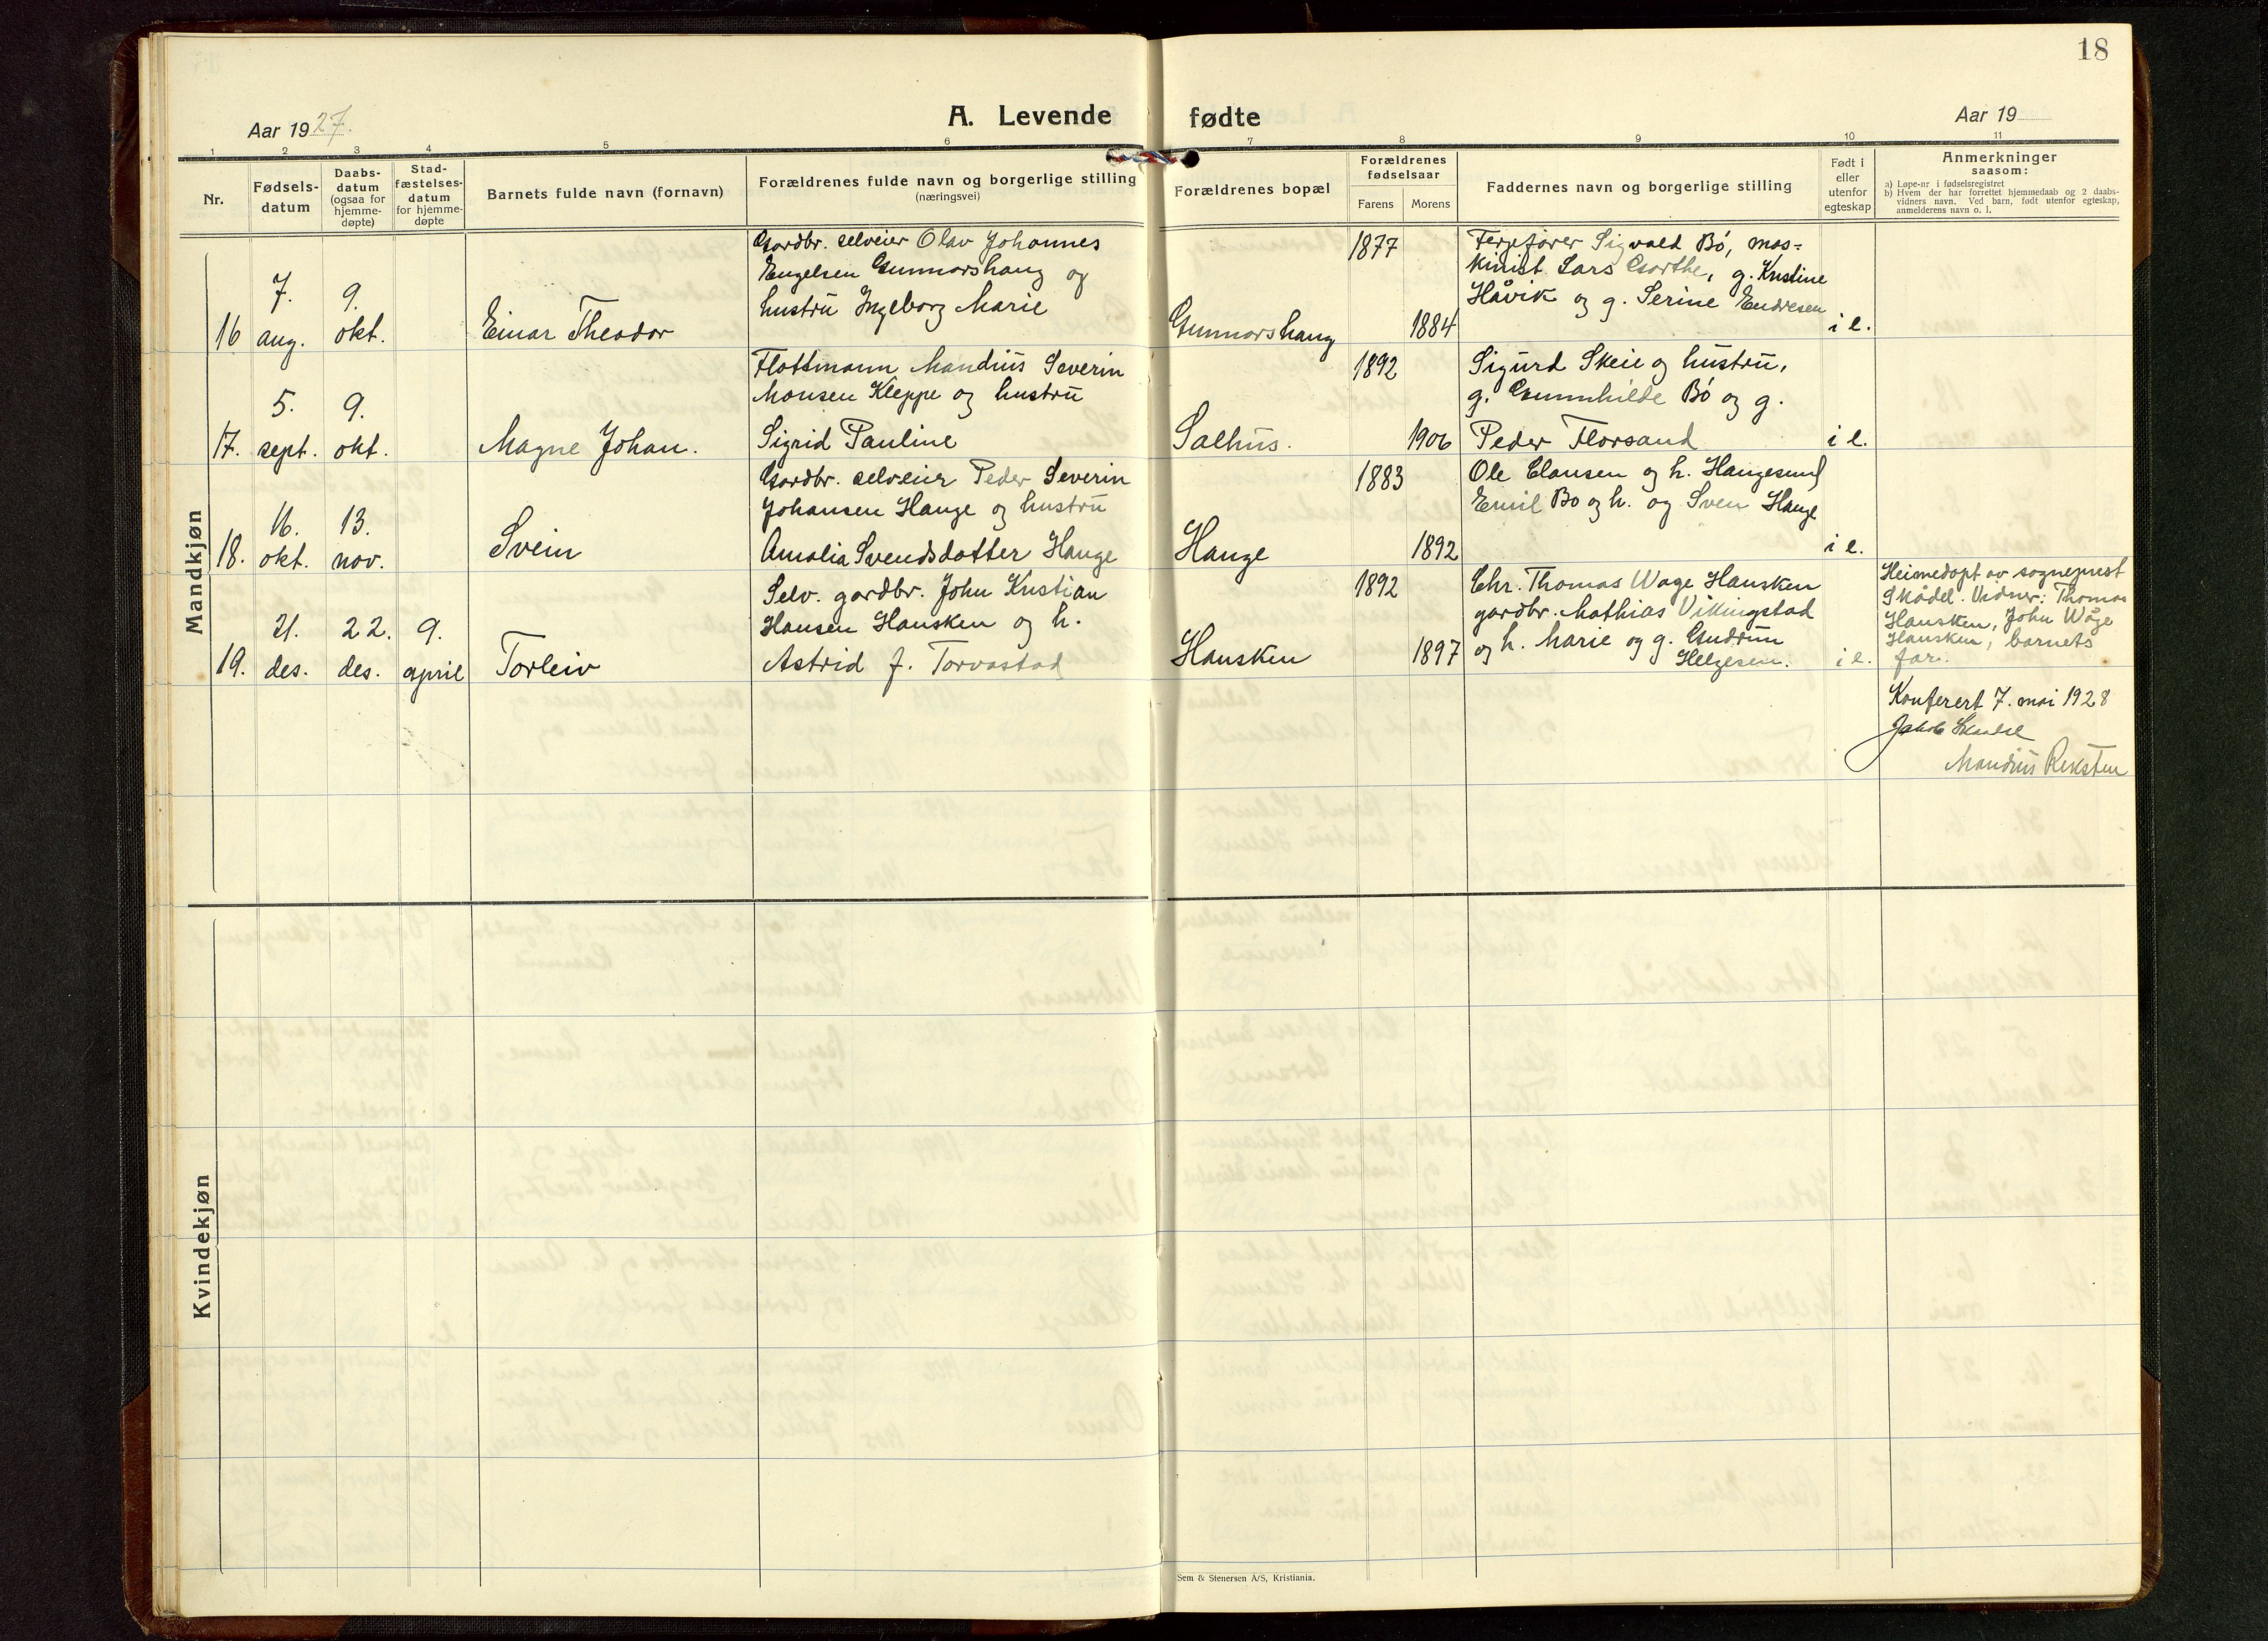 18
A. Levende fødte
Aar 1927.
Aar 19
1 2 3 4 5 6 7 8 9 10 11
Nr.
Fødsels-
datum
Daabs-
datum
(ogsaa for
hjemme-
døpte)
Stad-
fæstelses-
datum
for hjemme-
døpte
Barnets fulde navn (fornavn)
Forældrenes fulde navn og borgerlige stilling
(næringsvei)
Forældrenes bopæl
Forældrenes
fødselsaar
Farens Morens
Faddernes navn og borgerlige stilling
Født i
eller
utenfor
egteskap
Anmerkninger
saasom:
a) Løpe-nr i fødselsregistret
b) Hvem der har forrettet hjemmedaab og 2 daabs-
vidners navn. Ved barn, født utenfor egteskap,
anmelderens navn o. l.
Mandkjøn
16
7.
aug.
9.
okt.
Einar Theodor
Gardbr. selveier Olav Johannes
Engelsen Gunnarshaug og
hustrü Ingeborg Marie
Gunnarshaug
1877
1884
Ferjefører Sigvald Bö, mas=
kinist Lars Garthe, g. Kristine
Håvik og g. Serine Endresen
i e.
17.
5.
sept.
9.
okt.
Magne Johan.
Flottmann Mandius Severin
Monsen Kleppe og hustrü
Sigrid Pauline
Salhüs.
1892
1906
Sigurd Skeie og hüstrü,
g. Gunnhilde Bö og g.
Peder Florsand
i e.
18.
16.
okt.
13.
nov.
Svein
Gardbr. selveier Peder Severin
Johansen Hauge og hustrü
Amalia Svendsdotter Hauge
Hauge
1883
1892
Ole Clausen og h. Haugesund
Emil Bo og h. og Sven Hauge
i e.
19.
21.
des.
22.
des.
9.
april
Torleiv
Selv. gardbr. John Kristian
Hansen Hausken og h.
Astrid f. Torvastad
Hausken
1892
1897
Chr. Thomas Wage Hausken
gardbr. Mathias Vikingstad
og h. Marie og g. Gudrun
Helgesen.
i e.
Heimedøpt av sogneprest
Skådel. Vidner: Thomas
Hausken, John Wåge
Hausken, barnets
far.
Konferert 7. mai 1928
Jakob Skaadel
Mandius Reksten
Kvindekjøn
Sem & Stenersen A/S, Kristiania.